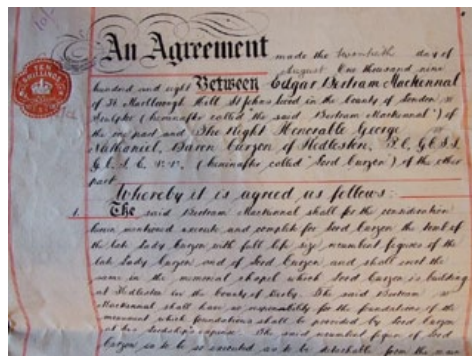 TEN
SHILLINGS
An Agreement made the twentieth day of
August One thousand nine
hundred and eight Between Edgar Bertram Mackennal
of 38 Marlborough Hill St Johns Wood in the County of London
Sculptor (hereinafter called the said Bertram Mackennal) of
the one part and The Right Honorable George
Nathaniel, Baron Curzon of Kedleston, P.C, G.C.S.I,
G.C.I.E, (hereinafter called "Lord Curzon) of the other
part
Whereby it is agreed as follows:-
1. The said Bertram Mackennal shall for the consideration
herein mentioned execute and complete for Lord Curzon the tomb of
the late Lady Curzon with full life size recumbent figures of the
late Lady Curzon and of Lord Curzon and shall erect the
same in the memorial chapel which Lord Curzon is building
at Kedleston in the County of Derby. The said Bertram
Mackennal shall have no responsibility for the foundations of the
monument which foundations shall be provided by Lord Curzon
at his Lordship's expense. The said recumbent figure of Lord
Curzon is to be so executed as to be detachable from the main